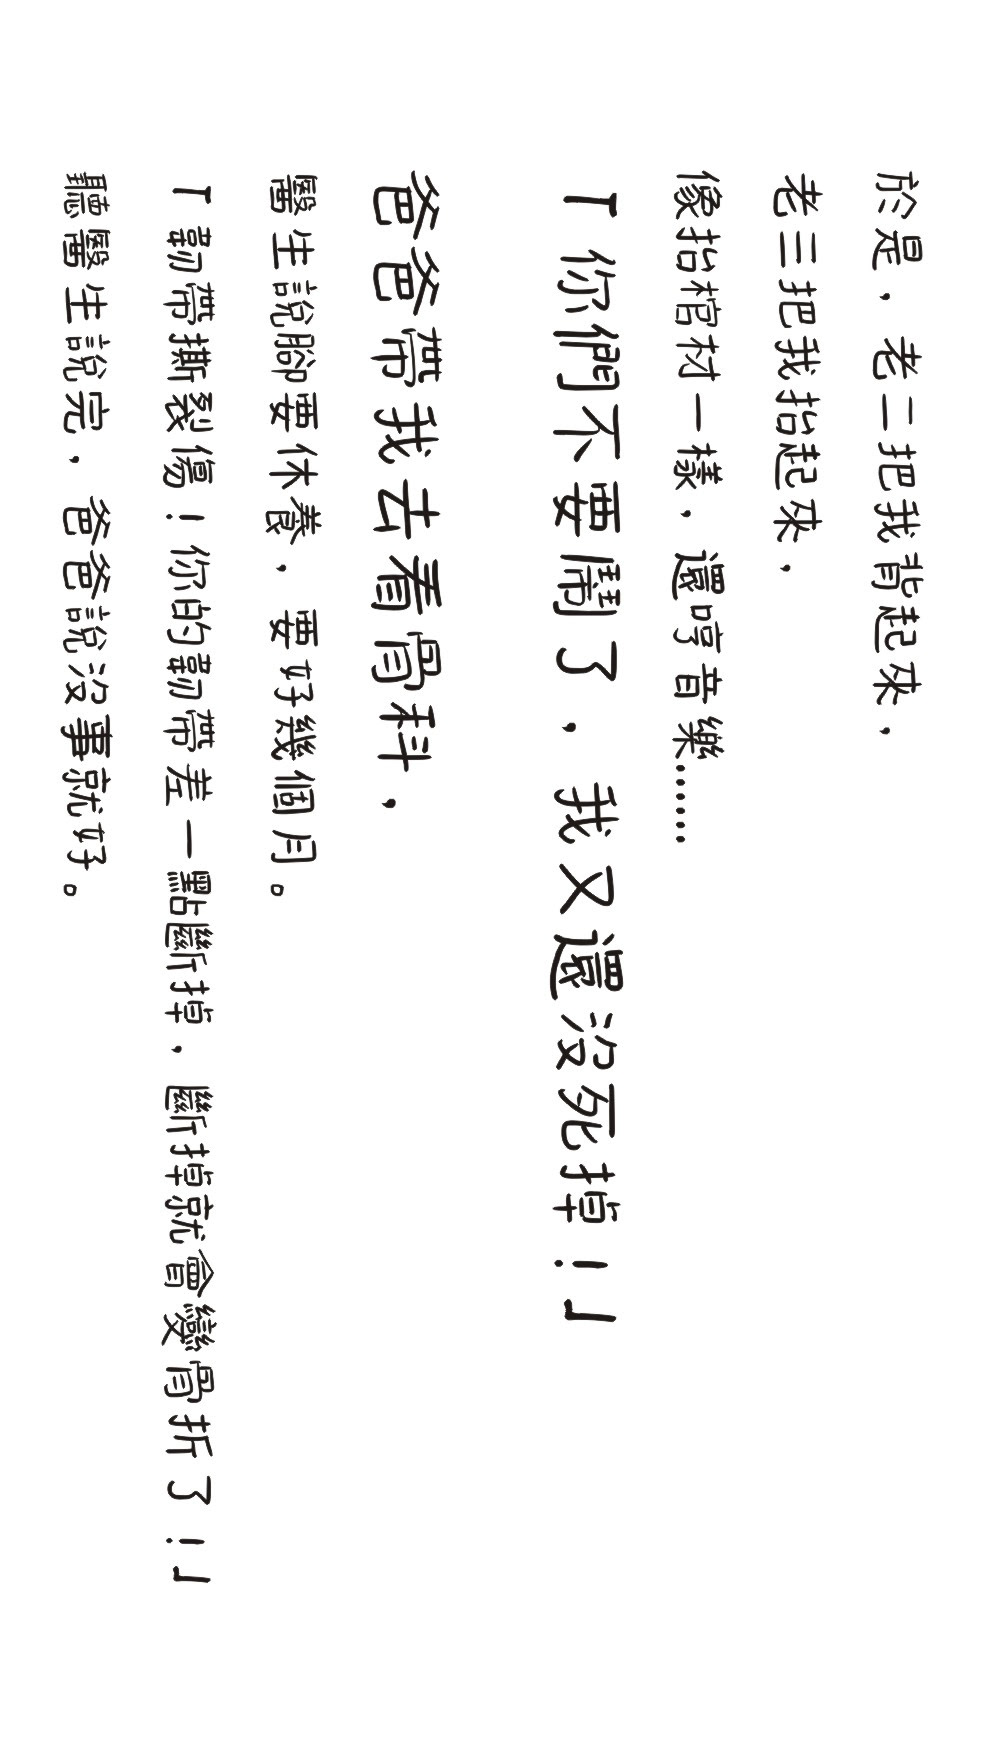 於是，老二把我背起來，
老三把我抬起來，
像抬棺材一樣，還哼音樂……
「你們不要鬧了，我又還沒死掉！」
爸爸帶我去看骨科，
醫生說腳要休養，要好幾個月。
「韌帶撕裂傷！你的韌帶差一點斷掉，斷掉就會變骨折了！」
聽醫生說完，爸爸說沒事就好。